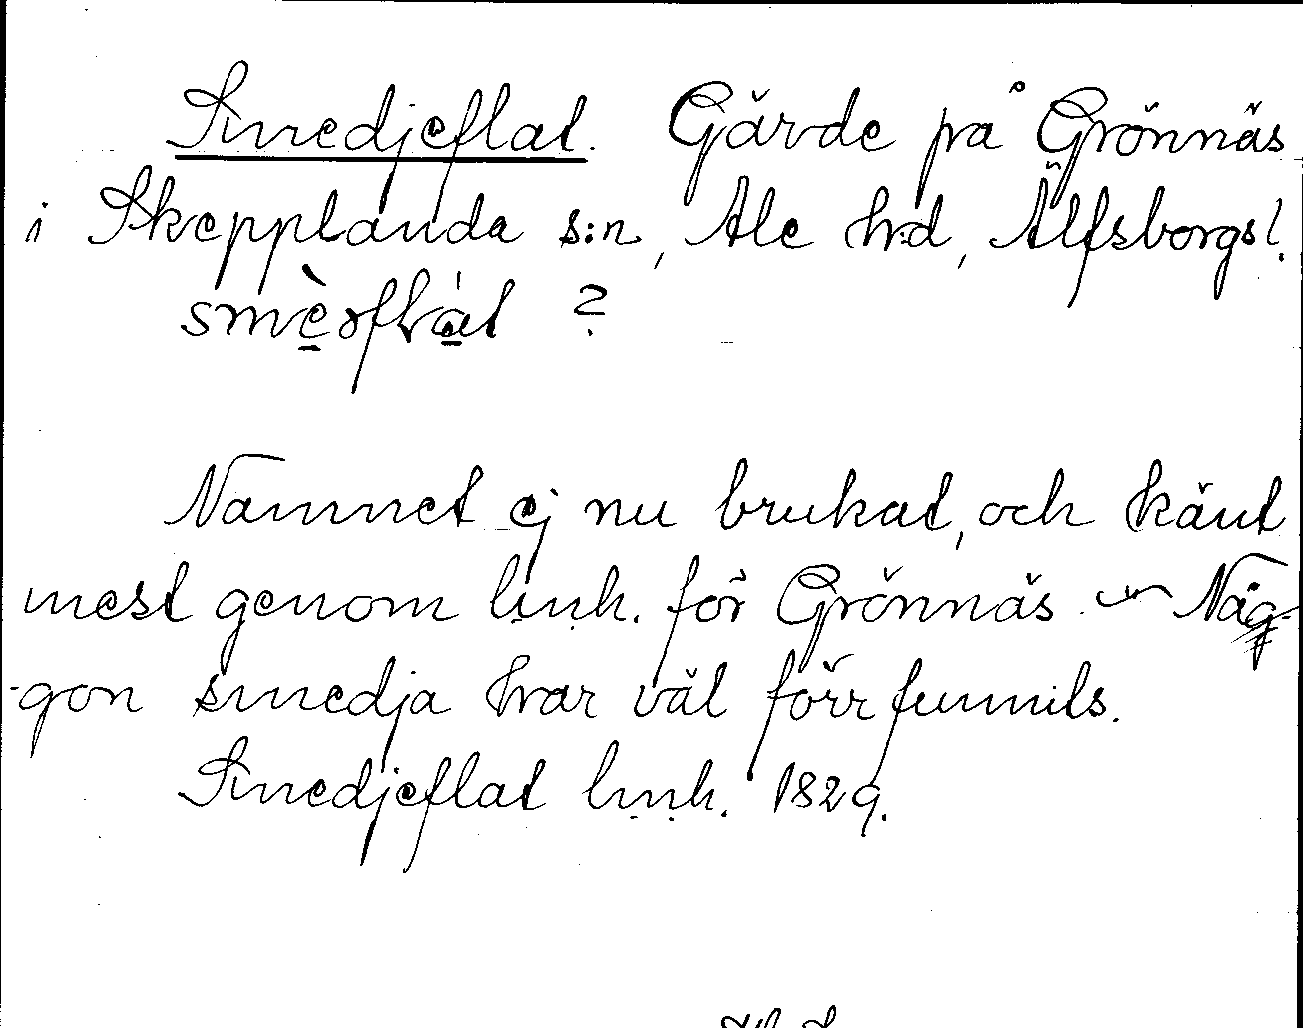 Smedjeflat. Gärde på Grönnäs
i Skepplanda s:n, Ale h:d, Älfsborgs l.
Namnet ej nu brukat, och känt
mest genom l:n:h. för Grönnäs — Någ-
-gon smedja har väl förr funnits.
Smedjeflat l:n:h. 1829.